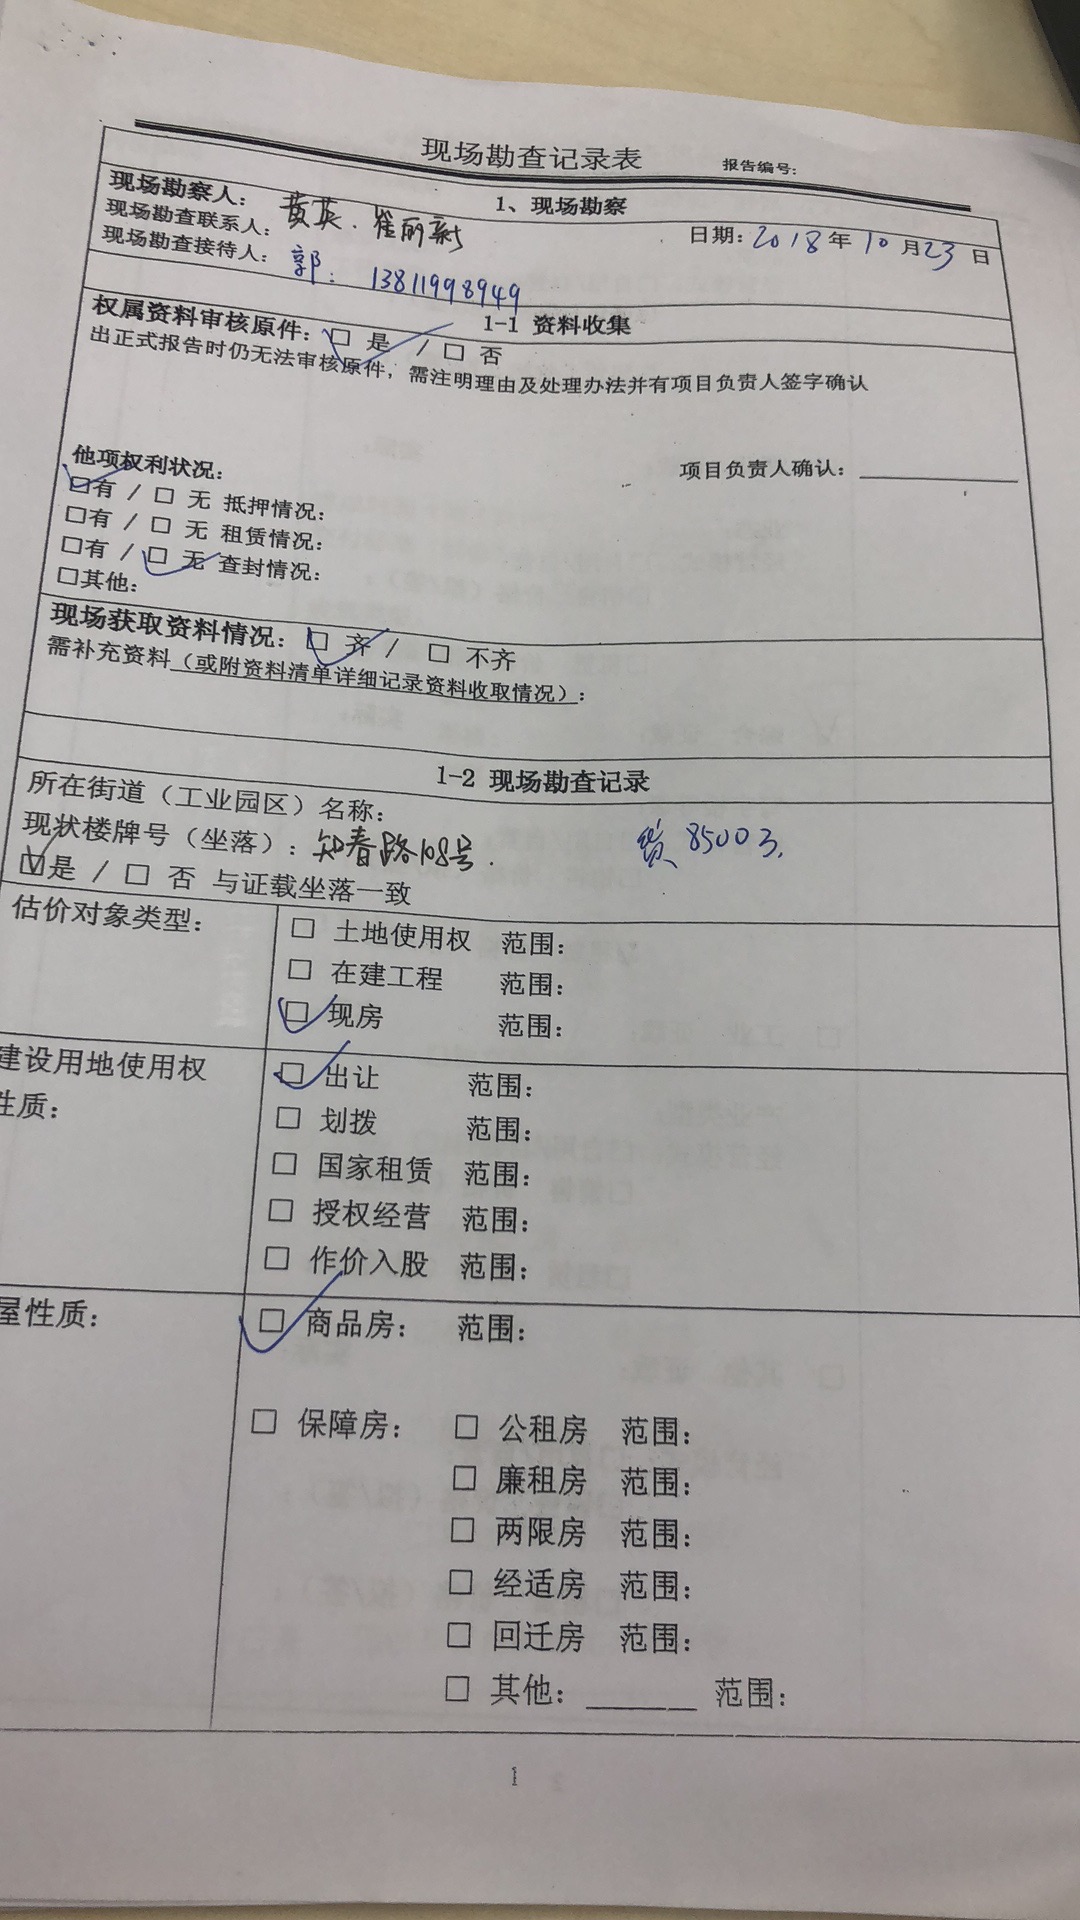 现场勘查记录表 报告编号：
1、现场勘察
现场勘察人： 黄英、崔丽新 日期：2018年10月23日
现场勘查联系人：
现场勘查接待人： 郭： 13811998949
1-1 资料收集
权属资料审核原件：☑ 是 / □ 否
出正式报告时仍无法审核原件，需注明理由及处理办法并有项目负责人签字确认
项目负责人确认：
他项权利状况：
☑有 / □ 无 抵押情况：
□有 / □ 无 租赁情况：
□有 / ☑ 无 查封情况：
□其他：
现场获取资料情况：☑ 齐 / □ 不齐
需补充资料（或附资料清单详细记录资料收取情况）：
1-2 现场勘查记录
所在街道（工业园区）名称：
现状楼牌号（坐落）：知春路108号. 85003.
☑是 / □ 否 与证载坐落一致
估价对象类型：
□ 土地使用权 范围：
□ 在建工程 范围：
☑ 现房 范围：
建设用地使用权
性质：
☑ 出让 范围：
□ 划拨 范围：
□ 国家租赁 范围：
□ 授权经营 范围：
□ 作价入股 范围：
屋性质：
☑ 商品房： 范围：
□ 保障房： □ 公租房 范围：
□ 廉租房 范围：
□ 两限房 范围：
□ 经适房 范围：
□ 回迁房 范围：
□ 其他：______ 范围：
1